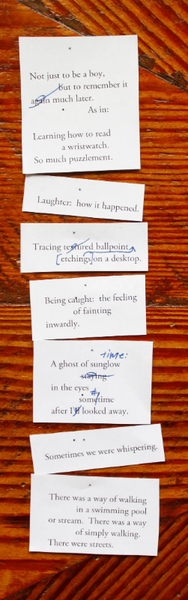 Not just to be a boy,
but to remember it
again much later.
As in:
Learning how to read
a wristwatch.
So much puzzlement.
Laughter: how it happened.
Tracing textured ballpoint
[etchings] on a desktop.
Being caught: the feeling
of fainting
inwardly.
time:
A ghost of sunglow
staying
in the eyes
sometime
after I'd looked away.
Sometimes we were whispering.
There was a way of walking
in a swimming pool
or stream. There was a way
of simply walking.
There were streets.